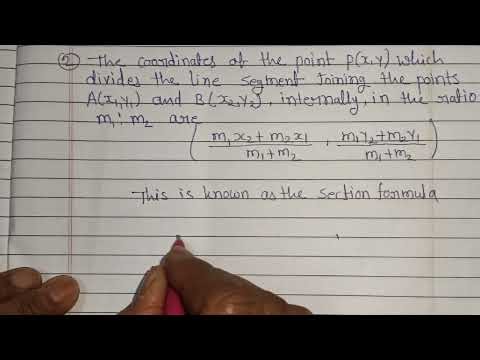 ② The coordinates of the point P(x,y) which
divides the line segment joining the points
A(x₁,y₁) and B(x₂,y₂), internally, in the ratio
m₁:m₂ are
( (m₁x₂+m₂x₁)/(m₁+m₂) , (m₁y₂+m₂y₁)/(m₁+m₂) )
This is known as the section formula